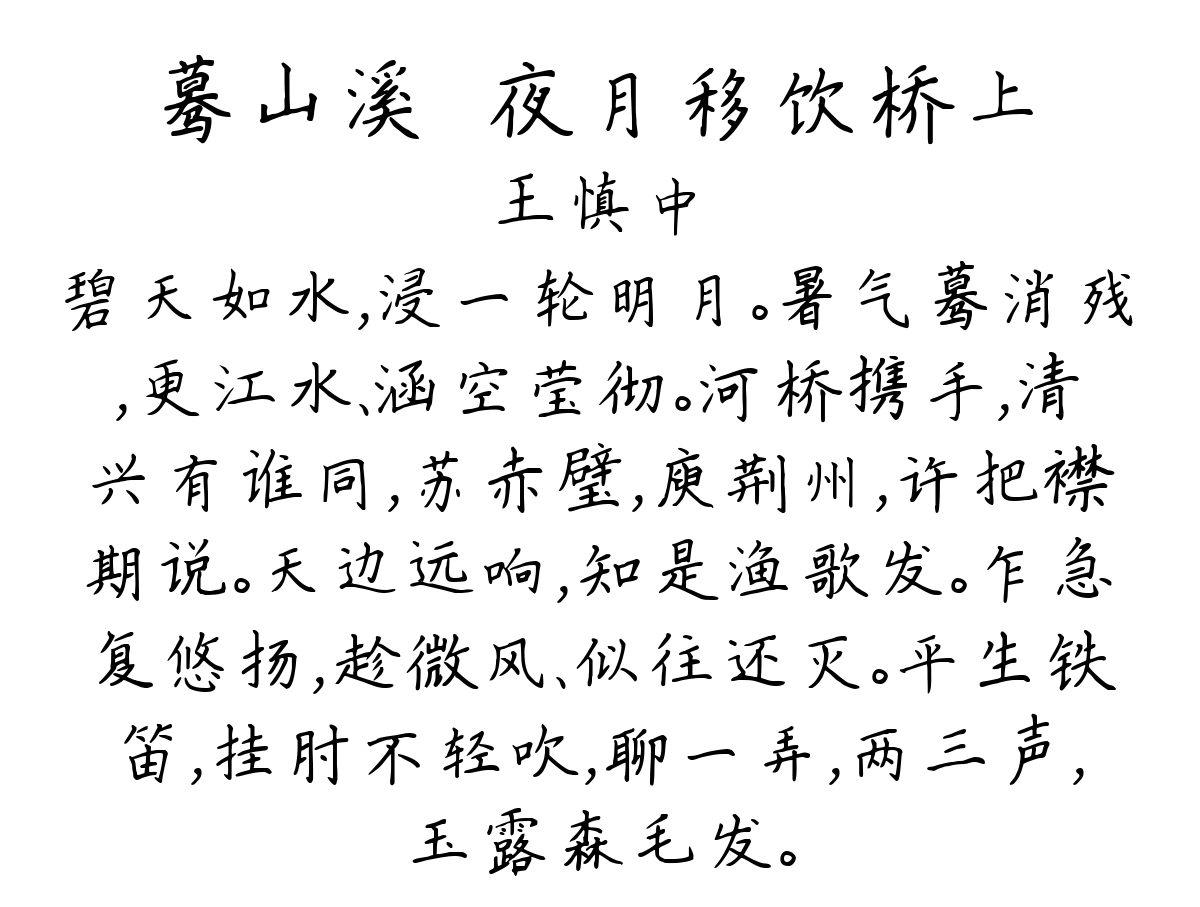 蓦山溪 夜月移饮桥上
王慎中
碧天如水,浸一轮明月。暑气蓦消残
,更江水、涵空莹彻。河桥携手,清
兴有谁同,苏赤壁,庾荆州,许把襟
期说。天边远响,知是渔歌发。乍急
复悠扬,趁微风、似往还灭。平生铁
笛,挂肘不轻吹,聊一弄,两三声,
玉露森毛发。